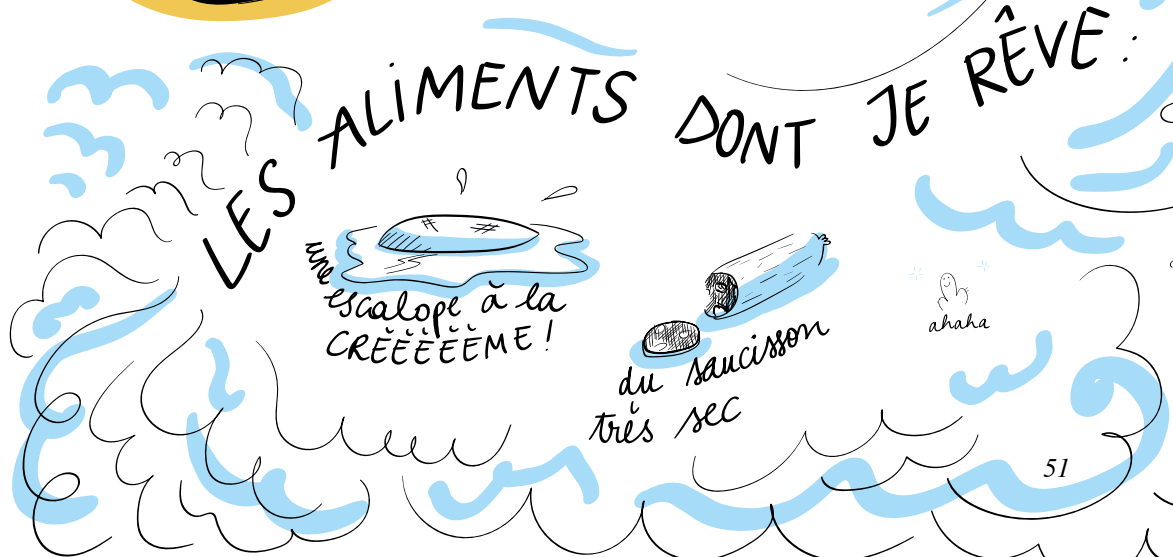 LES ALiMENTS DONT JE RÊVE :
une
escalope à la
CRÈÈÈÈÈME !
du saucisson
très sec
ahaha
51